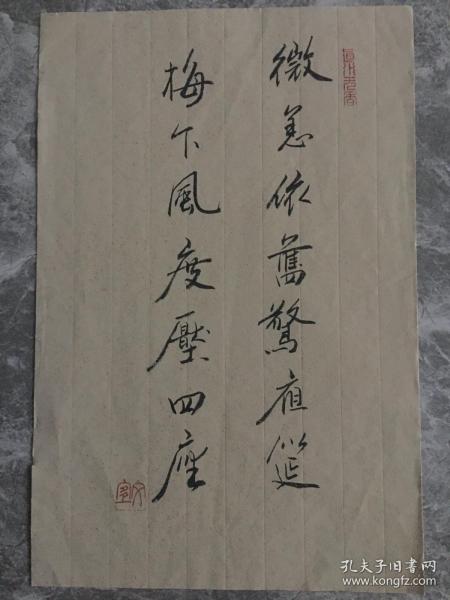 微恙依舊驚筵
梅下風度壓四座
真水无香
孔夫子旧书网
www.kongfz.com